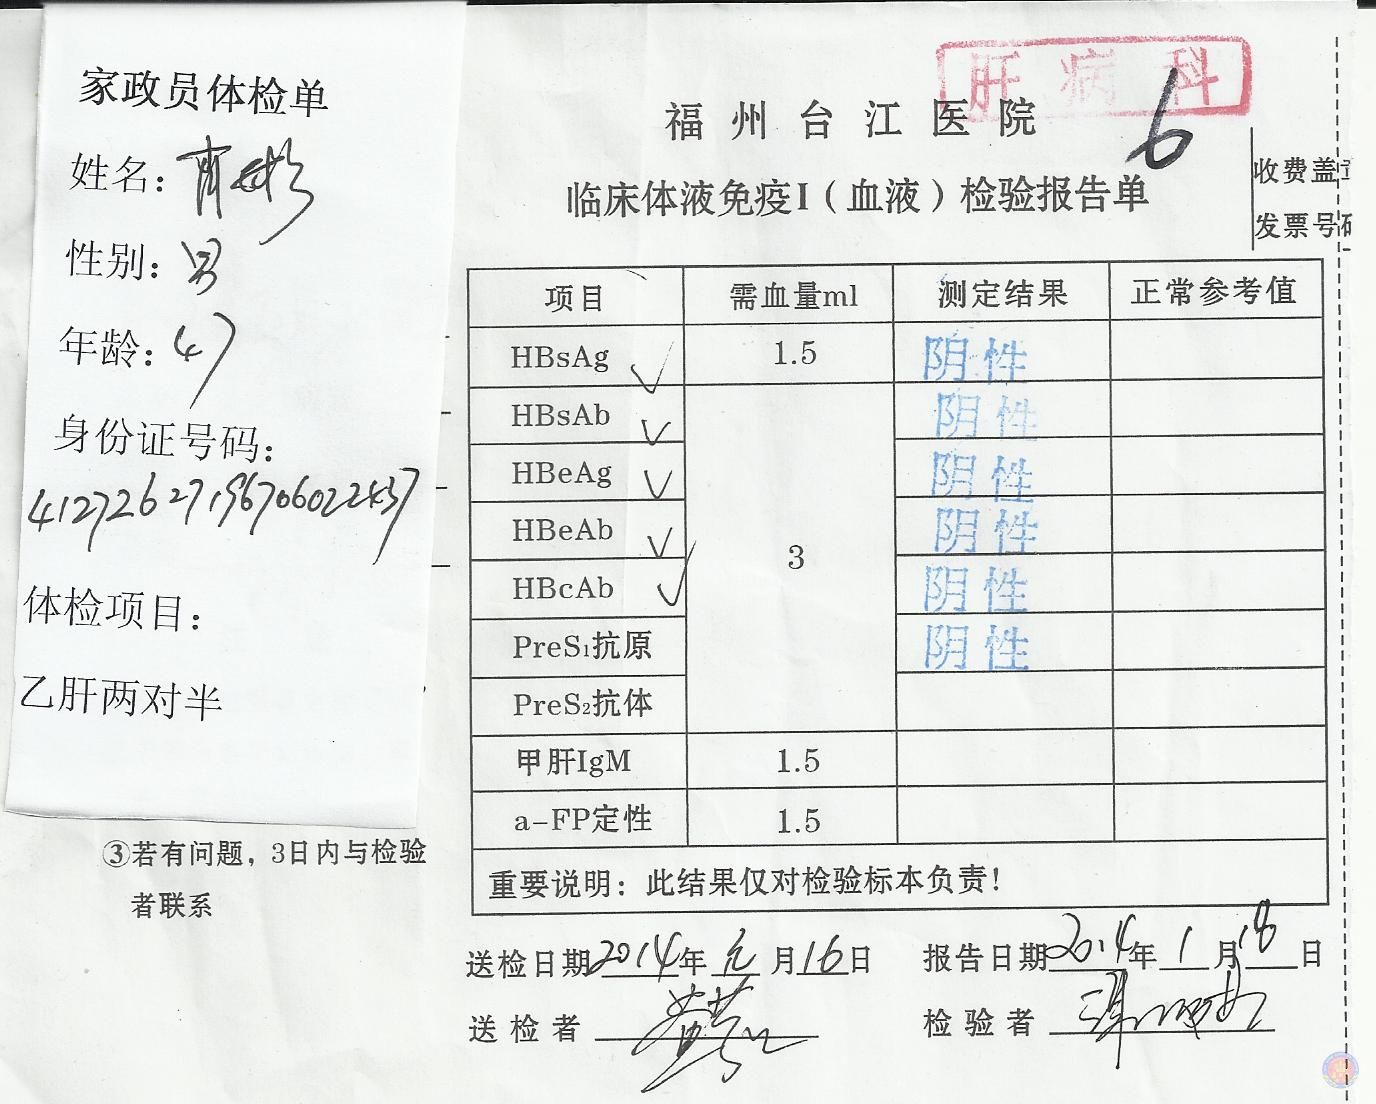 家政员体检单
姓名：
性别：男
年龄：47
身份证号码：
体检项目：
乙肝两对半
③若有问题，3日内与检验
者联系
肝病科
6
福州台江医院
临床体液免疫I（血液）检验报告单
收费盖
发票号码
项目 需血量ml 测定结果 正常参考值
HBsAg 1.5 阴性
HBsAb 阴性
HBeAg 阴性
HBeAb 3 阴性
HBcAb 阴性
PreS₁抗原 阴性
PreS₂抗体
甲肝IgM 1.5
a-FP定性 1.5
重要说明：此结果仅对检验标本负责！
送检日期2014年元月16日 报告日期2014年1月18日
送检者 检验者